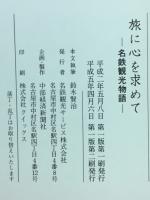 旅に心を求めて
―名鉄観光物語―
平成二年五月八日　第一版第一刷発行
平成五年四月六日　第一版第二刷発行
本文執筆　鈴木賢治
発行者　名鉄観光サービス株式会社
名古屋市中村区名駅四丁目4番8号
企画・製作　中部経済新聞社
名古屋市中村区名駅四丁目4番12号
印刷　株式会社クイックス
落丁・乱丁はお取り替えいたします